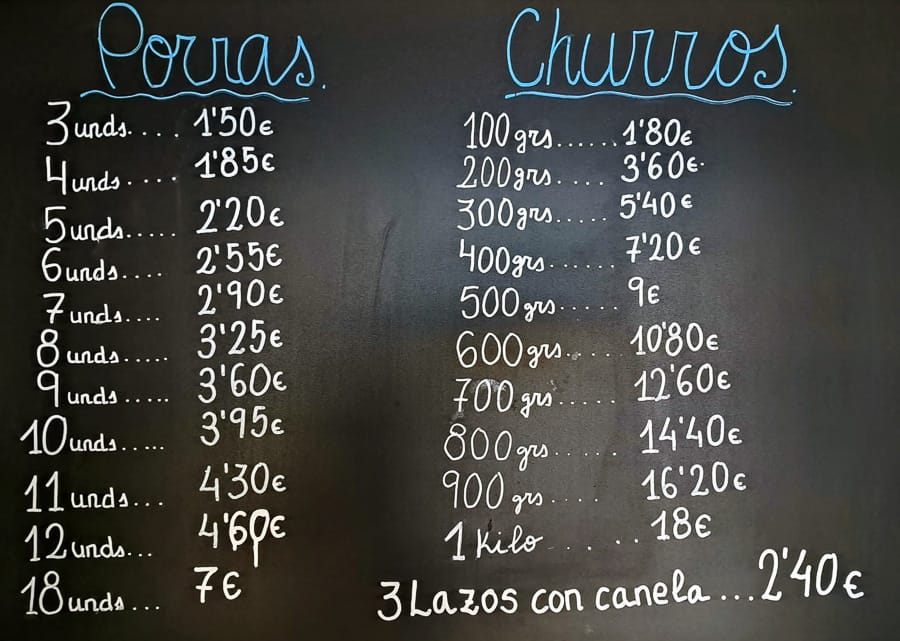 Porras.
3 unds.... 1'50€
4 unds.... 1'85€
5 unds..... 2'20€
6 unds.... 2'55€
7 unds.... 2'90€
8 unds..... 3'25€
9 unds..... 3'60€
10 unds..... 3'95€
11 unds... 4'30€
12 unds... 4'60€
18 unds... 7€
Churros.
100 grs...... 1'80€
200 grs..... 3'60€.
300 grs..... 5'40€
400 grs...... 7'20€
500 grs..... 9€
600 grs...... 10'80€
700 grs..... 12'60€
800 grs...... 14'40€
900 grs.... 16'20€
1 Kilo ...... 18€
3 Lazos con canela ... 2'40€